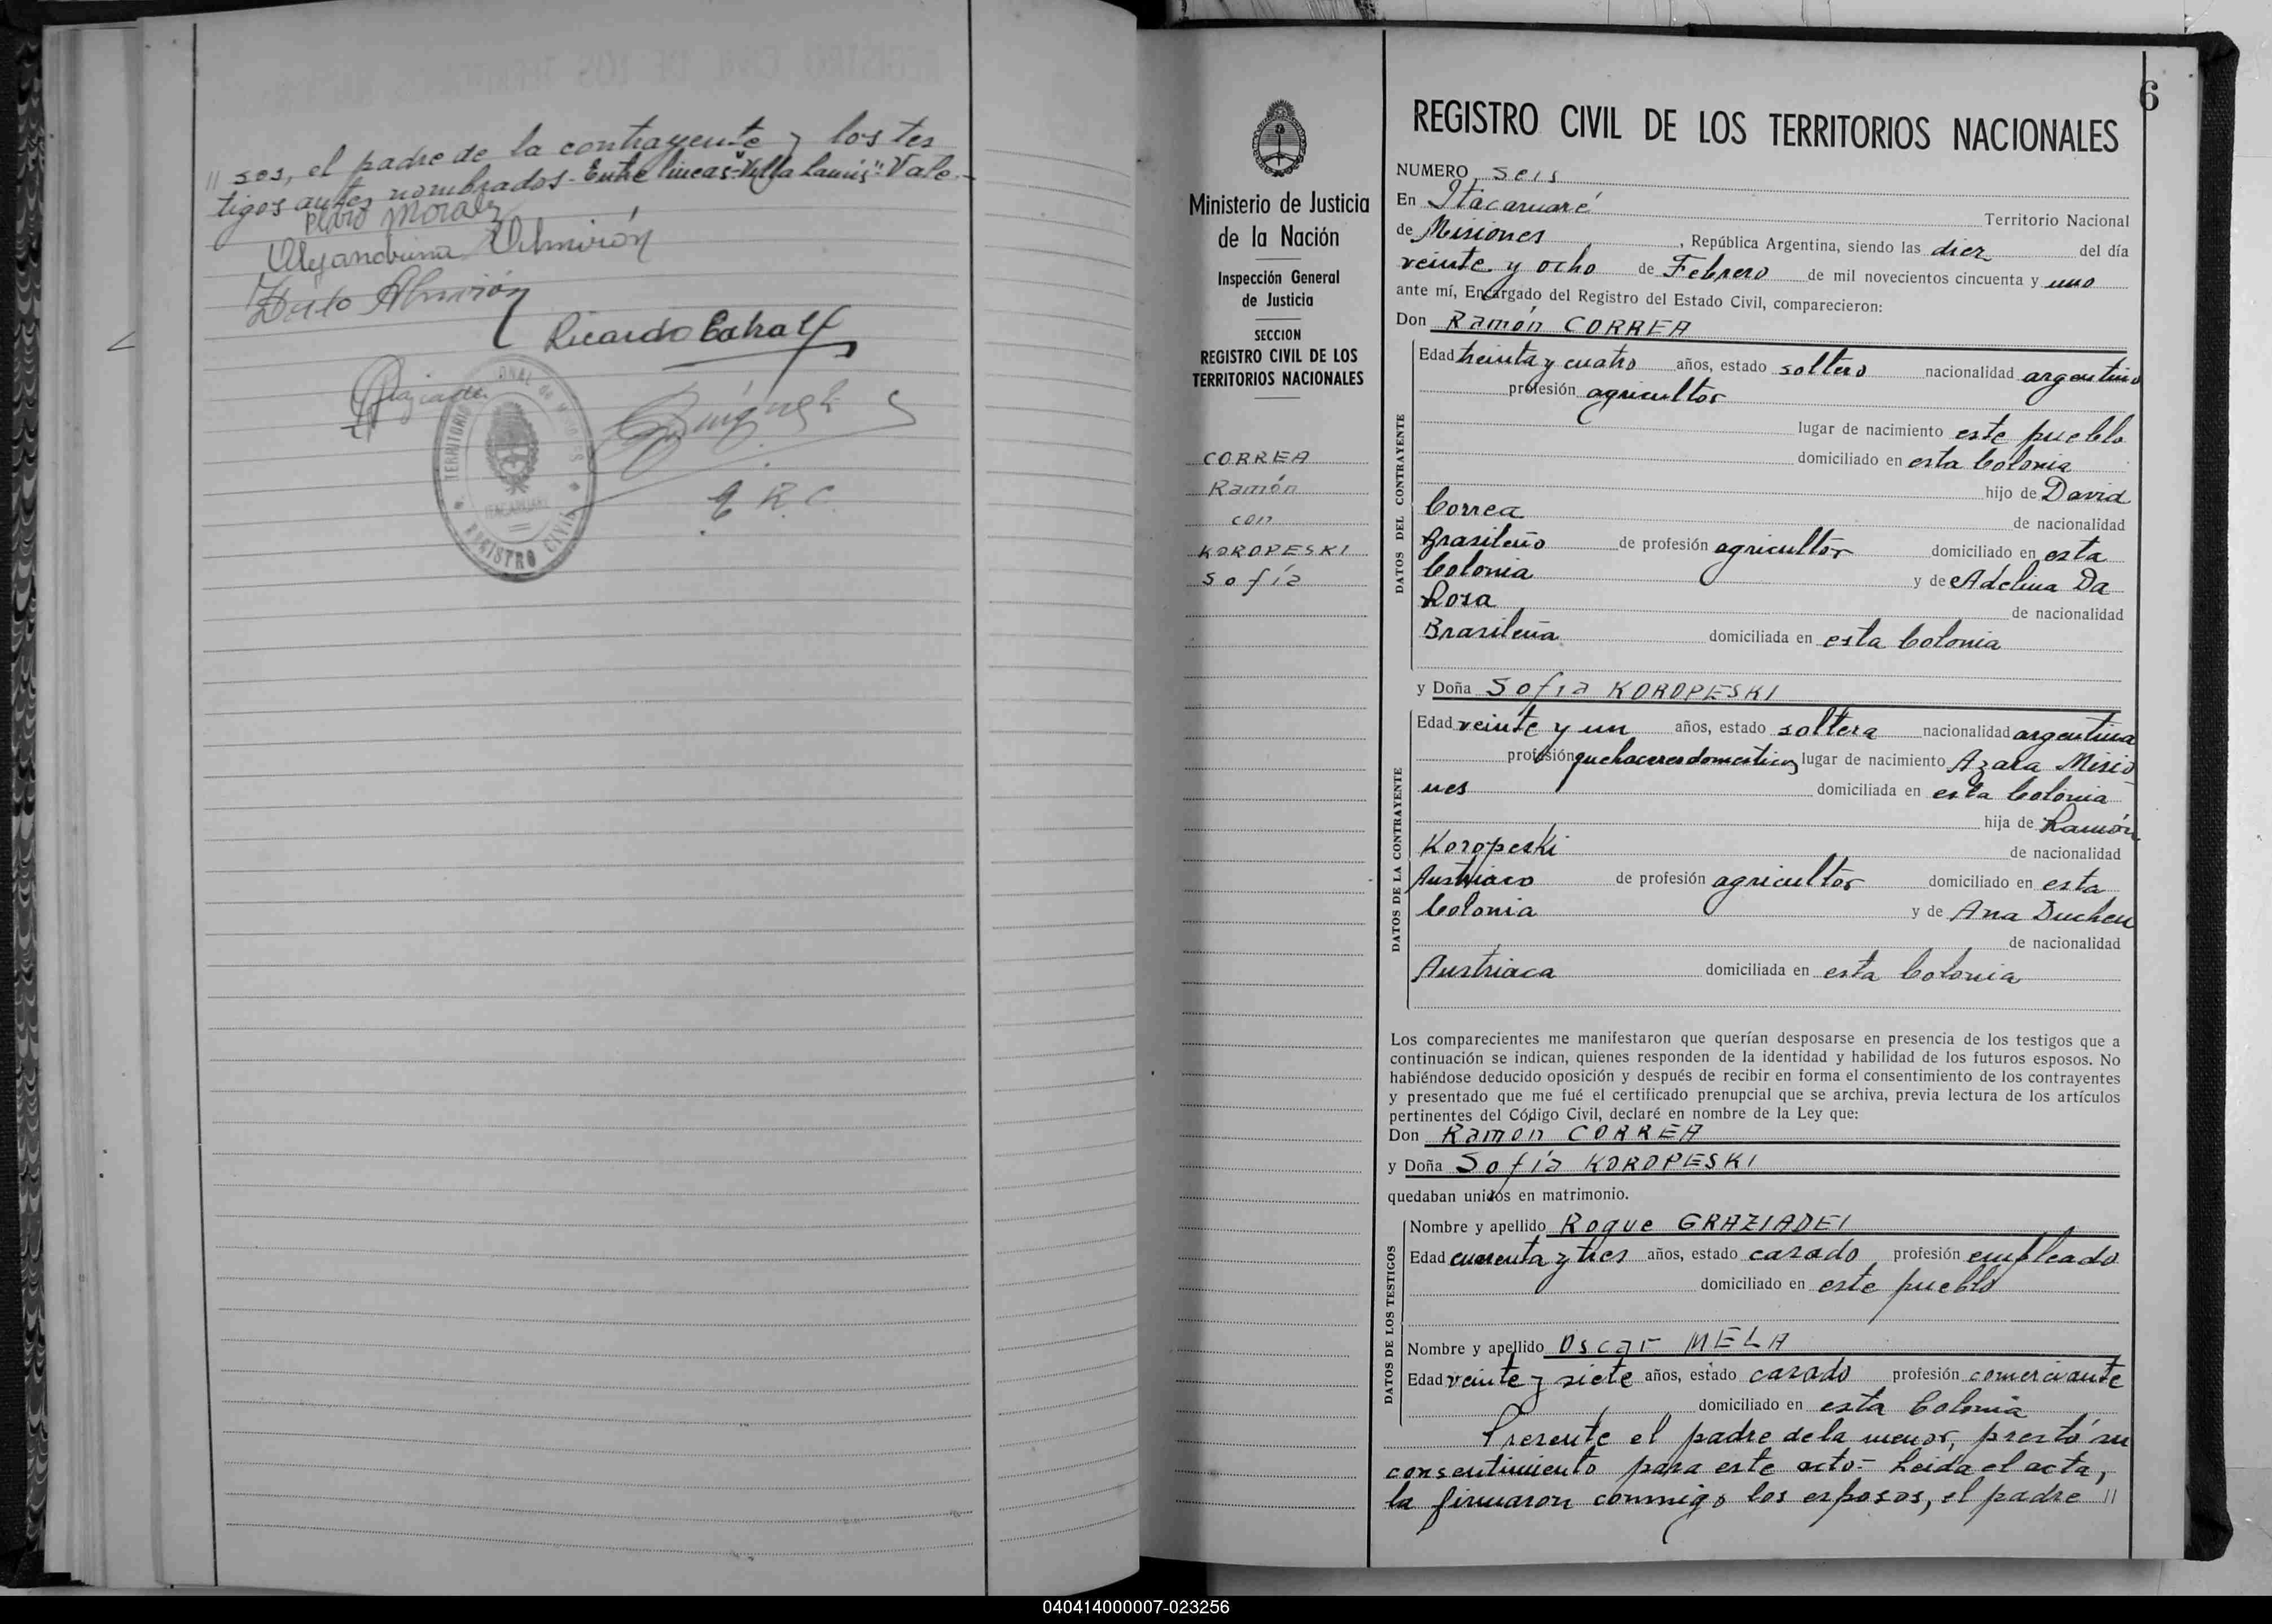 // sos, el padre de la contrayente y los tes
tigos antes nombrados - Entre lineas "Villa Lanús": Vale.-
Pedro Morales
Alejandrina Almirón
Almirón
Ricardo Cabral
TERRITORIO NACIONAL de MISIONES
ITACARUARE
REGISTRO CIVIL
E. R. C.
6
Ministerio de Justicia
de la Nación
Inspección General
de Justicia
SECCION
REGISTRO CIVIL DE LOS
TERRITORIOS NACIONALES
CORREA
Ramón
con
KOROPESKI
Sofía
REGISTRO CIVIL DE LOS TERRITORIOS NACIONALES
NUMERO seis
En Itacaruaré Territorio Nacional
de Misiones, República Argentina, siendo las diez del día
veinte y ocho de Febrero de mil novecientos cincuenta y uno
ante mí, Encargado del Registro del Estado Civil, comparecieron:
Don Ramón CORREA
DATOS DEL CONTRAYENTE
Edad treinta y cuatro años, estado soltero nacionalidad argentino
profesión agricultor
lugar de nacimiento este pueblo
domiciliado en esta Colonia
hijo de David
Correa de nacionalidad
Brasileño de profesión agricultor domiciliado en esta
Colonia y de Adelina Da
Rosa de nacionalidad
Brasileña domiciliada en esta Colonia
y Doña Sofía KOROPESKI
DATOS DE LA CONTRAYENTE
Edad veinte y un años, estado soltera nacionalidad argentina
profesión quehaceres domesticos lugar de nacimiento Azara Misio
nes domiciliada en esta Colonia
hija de Ramón
Koropeski de nacionalidad
Austriaco de profesión agricultor domiciliado en esta
Colonia y de Ana Duchen
de nacionalidad
Austriaca domiciliada en esta Colonia
Los comparecientes me manifestaron que querían desposarse en presencia de los testigos que a
continuación se indican, quienes responden de la identidad y habilidad de los futuros esposos. No
habiéndose deducido oposición y después de recibir en forma el consentimiento de los contrayentes
y presentado que me fué el certificado prenupcial que se archiva, previa lectura de los artículos
pertinentes del Código Civil, declaré en nombre de la Ley que:
Don Ramón CORREA
y Doña Sofía KOROPESKI
quedaban unidos en matrimonio.
DATOS DE LOS TESTIGOS
Nombre y apellido Roque GRAZIADEI
Edad cuarenta y tres años, estado casado profesión empleado
domiciliado en este pueblo
Nombre y apellido Oscar MELA
Edad veinte y siete años, estado casado profesión comerciante
domiciliado en esta Colonia
Presente el padre de la menor, prestó su
consentimiento para este acto.- Leida el acta,
la firmaron conmigo los esposos, el padre //
040414000007-023256